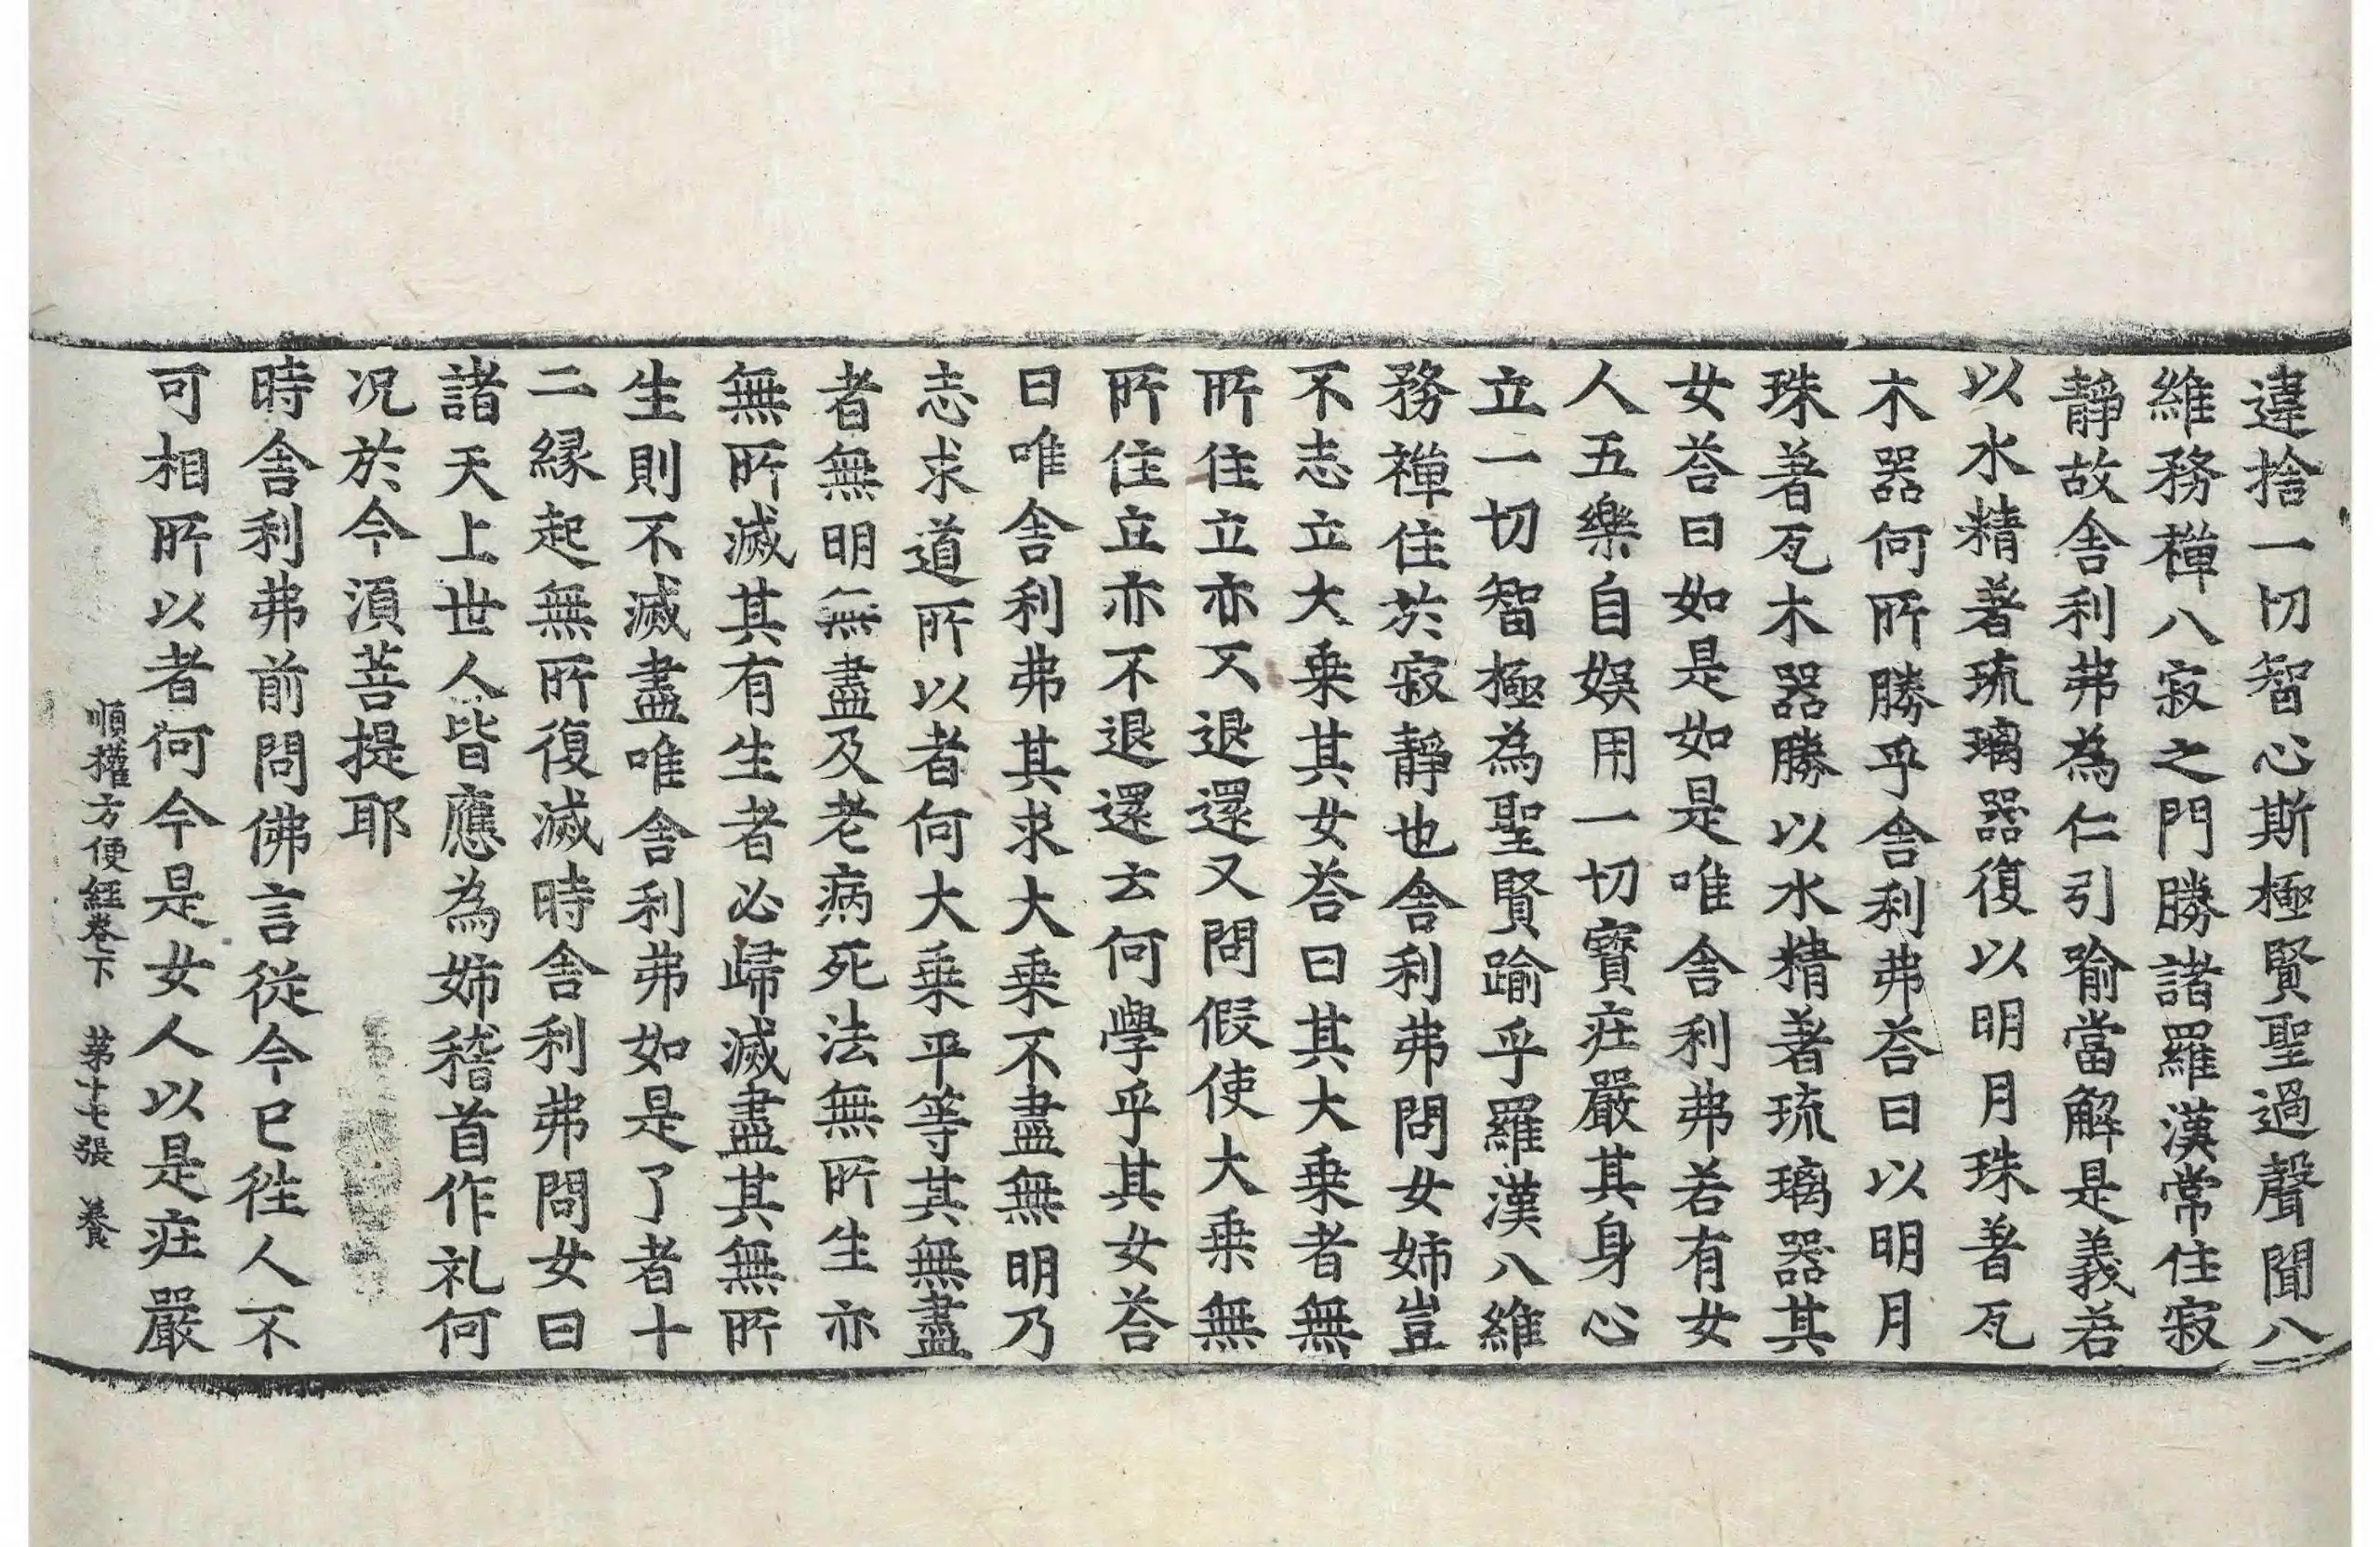 違捨一切智心斯極賢聖過聲聞八
維務禪八寂之門勝諸羅漢常住寂
靜故舍利弗為仁引喻當解是義若
以水精著琉璃器復以明月珠著瓦
木器何所勝乎舍利弗荅曰以明月
珠著瓦木器勝以水精著琉璃器其
女荅曰如是如是唯舍利弗若有女
人五樂自娛用一切寳庄嚴其身心
立一切智極為聖賢踰乎羅漢八維
務禪住於寂靜也舍利弗問女姉豈
不志立大乗其女荅曰其大乗者無
所住立亦不退還又問假使大乗無
所住立亦不退還云何學乎其女荅
曰唯舍利弗其求大乗不盡無明乃
志求道所以者何大乗平等其無盡
者無明無盡及老病死法無所生亦
無所滅其有生者必歸滅盡其無所
生則不滅盡唯舍利弗如是了者十
二縁起無所復滅時舍利弗問女曰
諸天上世人皆應為姉稽首作礼何
况於今湏菩提耶
時舍利弗前問佛言從今已徃人不
可相所以者何今是女人以是庄嚴
順權方便經卷下　第十七張　養